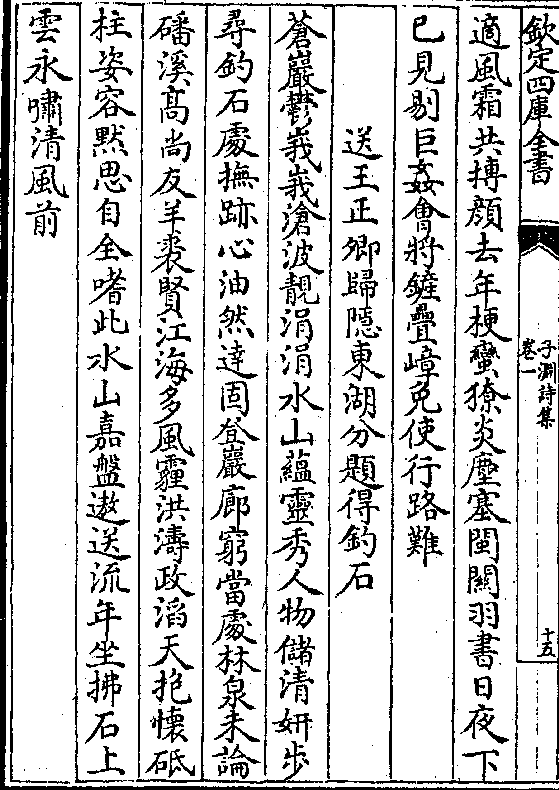 欽定四庫全書
子淵詩集
卷一
十五
適風霜共摶顔去年梗蠻獠炎塵塞閩關羽書日夜下
已見剔巨姦㑹將鏟疊嶂免使行路難
送王正卿歸隱東湖分題得釣石
蒼巖鬱峩峩滄波靚涓涓水山蘊靈秀人物儲清妍步
尋釣石處撫跡心油然達固登巖廊窮當處林泉未論
磻溪髙尚友羊裘賢江海多風霾洪濤政滔天抱懷砥
柱姿容黙思自全嗜此水山嘉盤遨送流年坐拂石上
雲永嘯清風前